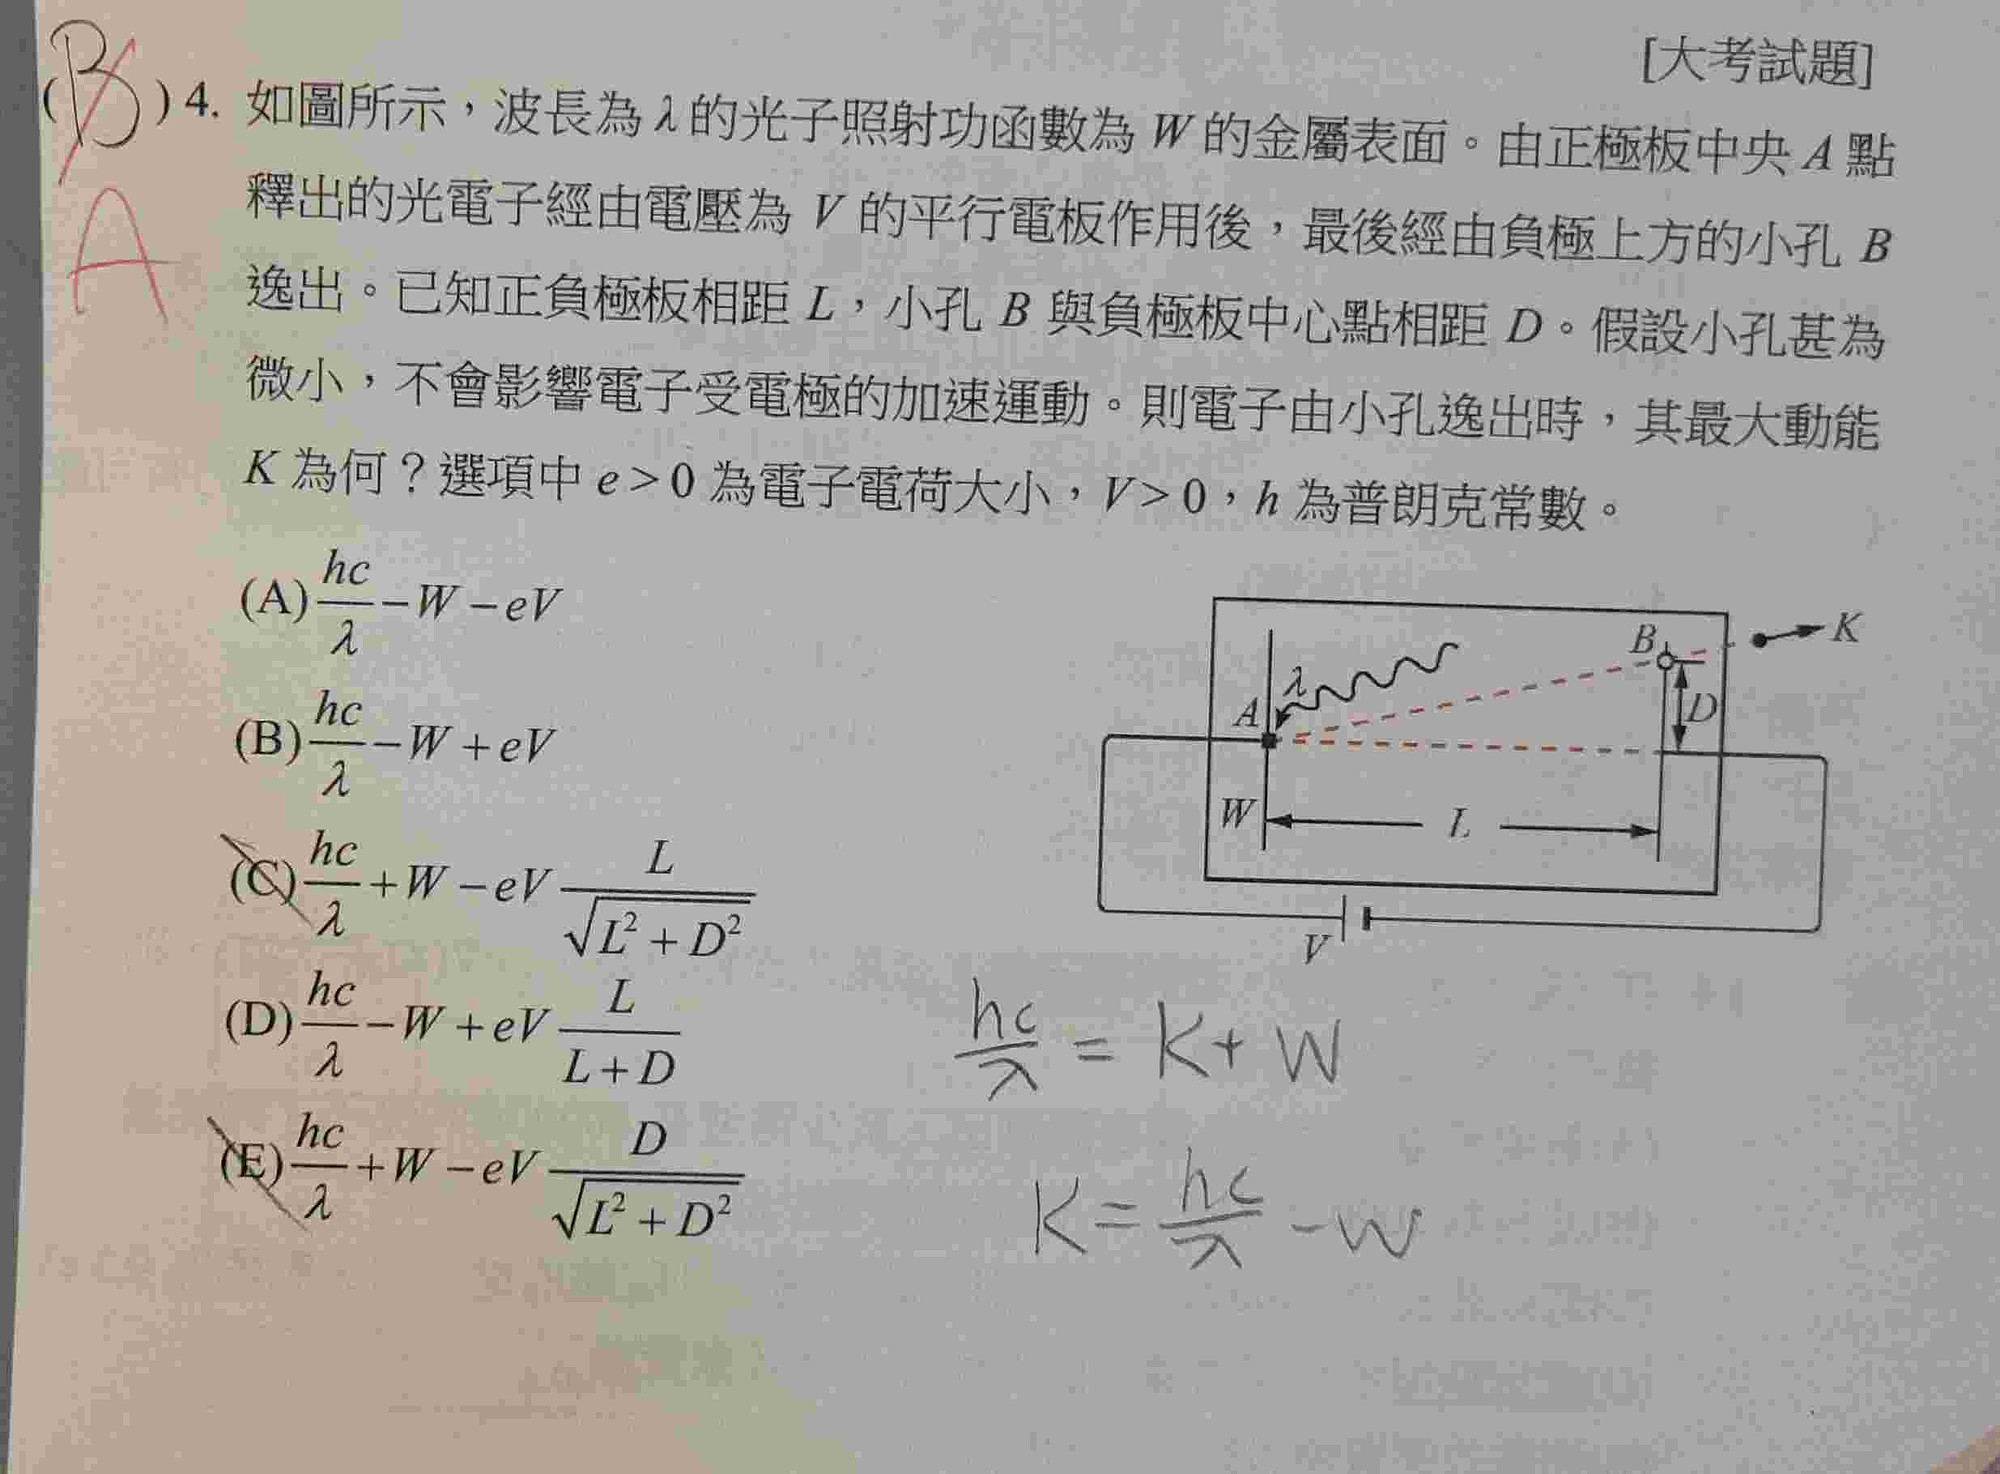 [大考試題]
(B)4. 如圖所示，波長為λ的光子照射功函數為W的金屬表面。由正極板中央A點
A
釋出的光電子經由電壓為V的平行電板作用後，最後經由負極上方的小孔B
逸出。已知正負極板相距L，小孔B與負極板中心點相距D。假設小孔甚為
微小，不會影響電子受電極的加速運動。則電子由小孔逸出時，其最大動能
K為何？選項中e>0為電子電荷大小，V>0，h為普朗克常數。
(A) hc/λ − W − eV
(B) hc/λ − W + eV
(C) hc/λ + W − eV L/√(L²+D²)
(D) hc/λ − W + eV L/(L+D)
(E) hc/λ + W − eV D/√(L²+D²)
B
K
λ
A
D
W
L
V
hc/λ = K + W
K = hc/λ − W